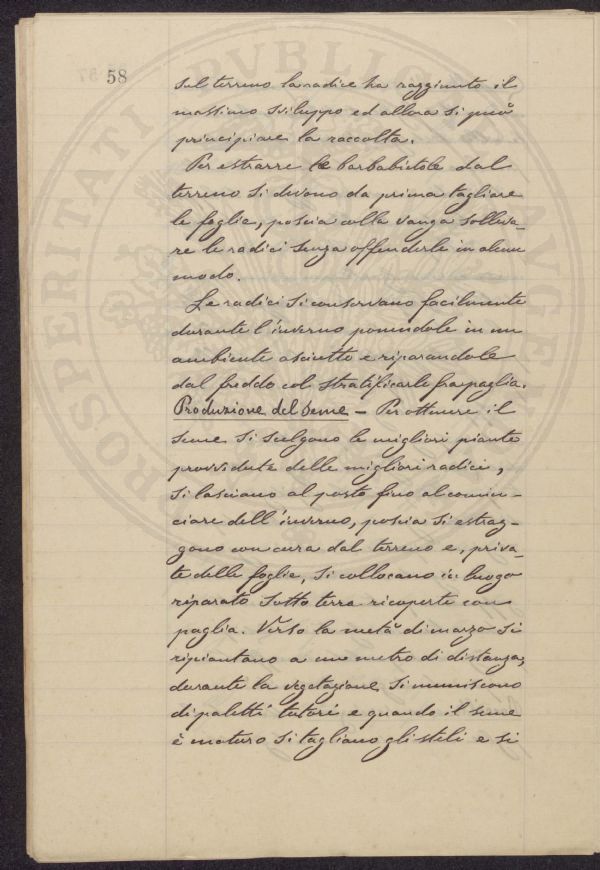 58
sul terreno la radice ha raggiunto il
massimo sviluppo ed allora si può
principiare la raccolta.
Per estrarre le barbabietole dal
terreno si devono da prima tagliare
le foglie, poscia colla vanga solleva-
re le radici senza offenderle in alcun
modo.
Le radici si conservano facilmente
durante l'inverno ponendole in un
ambiente asciutto e riparandole
dal freddo col stratificarle fra paglia.
Produzione del Seme - Per ottenere il
seme si scelgono le migliori piante
provvedute delle migliori radici,
si lasciano al posto fino al comin-
ciare dell'inverno, poscia si estrag-
gono con cura dal terreno e, priva-
te delle foglie, si collocano in luogo
riparato sotto terra ricoperte con
paglia. Verso la metà di marzo si
ripiantano a un metro di distanza,
durante la vegetazione si muniscono
di paletti tutori e quando il seme
è maturo si tagliano gli steli e si